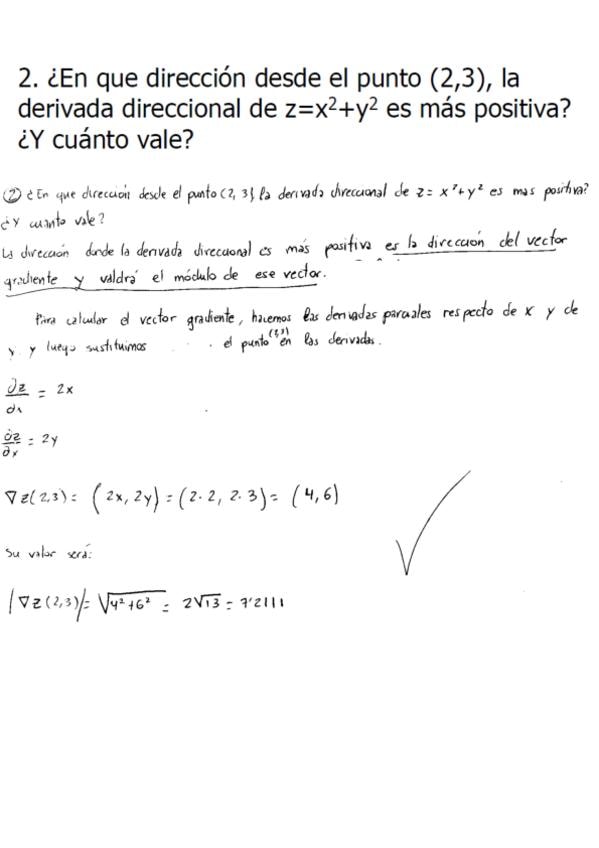 2. ¿En que dirección desde el punto (2,3), la
derivada direccional de z=x²+y² es más positiva?
¿Y cuánto vale?
② ¿En que dirección desde el punto (2, 3), la derivada direccional de z = x² + y² es mas positiva?
¿Y cuanto vale?
La dirección donde la derivada direccional es más positiva es la dirección del vector
gradiente y valdrá el módulo de ese vector.
Para calcular el vector gradiente, hacemos las derivadas parciales respecto de x y de
y y luego sustituimos el punto (2,3) en las derivadas.
∂z/∂x = 2x
∂z/∂x = 2y
∇z(2,3) = (2x, 2y) = (2·2, 2·3) = (4,6)
Su valor será:
|∇z(2,3)| = √4²+6² = 2√13 = 7'2111